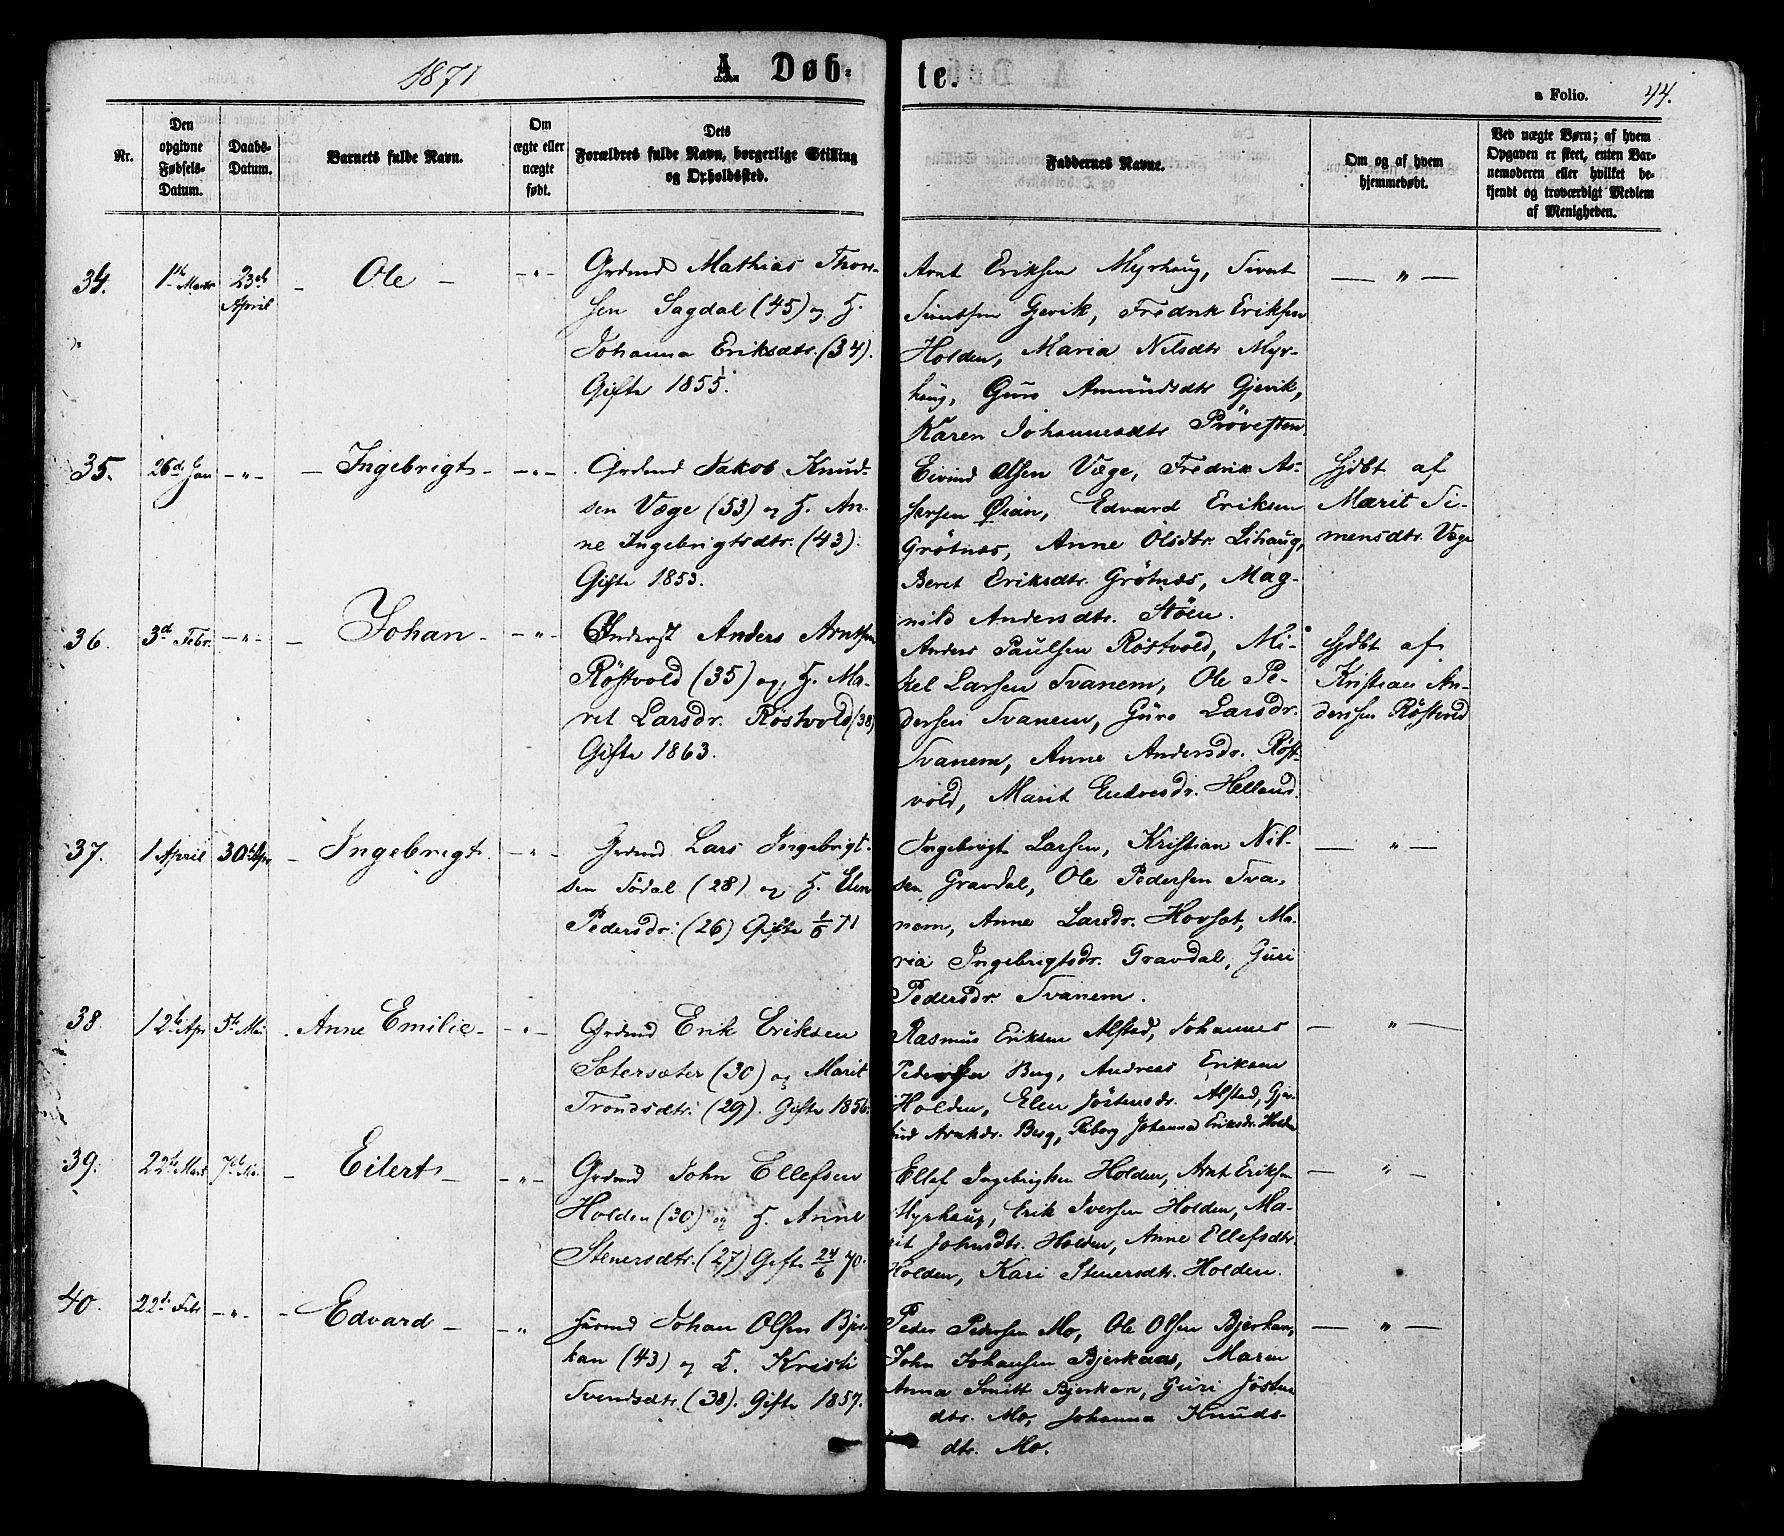 1871
A Døb-
te.
a Folio. 44.
Nr.
Den
opgivne
Fødsels-
Datum.
Daabs-
Datum.
Barnets fulde Navn.
Om
ægte eller
uægte
født.
Dets
Forældres fulde Navn, borgerlige Stilling
og Opholdssted.
Faddernes Navne.
Om og af hvem
hjemmedøbt.
Ved uægte Børn; af hvem
Opgaven er skeet, enten Bar-
nemoderen eller hvilket be-
kjendt og troværdigt Medlem
af Menigheden.
34. 1ste Marts 23de April – Ole – – " –
Grdmd Mathias Thor-
sen Sagdal (45) og H.
Johanna Eriksdtr. (34).
Gifte 1855.
Arnt Eriksen Myrhaug, Sivert
Sivertsen Gjevik, Fredrik Eriksen
Holden, Maria Nilsdtr Myr-
haug, Guro Amundsdtr Gjevik,
Karen Johannesdtr Prövesten.
— " —
35. 26de Jan – " – – Ingebrigt – – " –
Grdmd Jakob Knud-
sen Væge (53) og H. An-
ne Ingebrigtsdtr. (43).
Gifte 1853.
Eivind Olsen Væge, Fredrik As-
Øian, Edvard Eriksen
Grötnes, Anne Olsdtr. Lihaug,
Beret Eriksdtr. Grötnæs, Mag-
nild Andersdtr. Stöen.
Hjdbt af
Marit Si-
mensdtr. Væge
36. 3de Febr. – " – – Johan – – " –
Inderst Anders Arntsen
Röstvold (35) og H. Ma-
rit Larsdr. Röstvold (38)
Gifte 1863.
Anders Paulsen Röstvold, Mi-
kel Larsen Svanem, Ole Pe-
dersen Svanem, Guro Larsdr.
Svanem, Anne Andersdr. Röst-
vold, Marit Endresdr. Helland.
Hjdbt af
Kristian An-
dersen Röstvold
37. 1 April 30te Apr – Ingebrigt – " –
Grdmd Lars Ingebrigt-
sen Södal (28) og H. Elen
Pedersdr. (26) Gifte 1/6 71
Ingebrigt Larsen, Kristian Nil-
sen Gravdal, Ole Pedersen Sva-
nem, Anne Larsdr. Hovsøt, Ma-
ria Ingebrigtsdr. Gravdal, Guri
Pedersdr. Svanem.
— " —
38. 12te Apr 5te Mai – Anne Emilie – – " –
Grdmd Erik Eriksen
Sætersæter (30) og Marit
Trondsdtr. (29). Gifte 1856.
Rasmus Eriksen Alstad, Johannes
Pedersen Berg, Andreas Eriksen
Holden, Elen Jöstensdr. Alstad, Gjer-
trud Arntdr. Berg, Johanna Eriksdr. Holden
— " —
39. 22de Mart 7de Mai – Eilert – – " –
Grdmd John Ellefsen
Holden (30) og H. Anne
Stenersdtr. (27) Gifte 24/6 70.
Ellef Ingebrigtsen Holden, Arnt Eriksen
Myrhaug, Erik Iversen Holden, Ma-
rit Johnsdtr. Holden, Anne Ellefsdtr.
Holden, Kari Stenersdtr. Holden.
— " —
40. 22de Febr – " – – Edvard – – "
Husmd Johan Olsen Bjer-
kan (43) og H. Kristi
Svendsdtr. (38). Gifte 1857.
Peder Pedersen Mo, Ole Olsen Bjerkan,
John Johansen Bjerkaas, Maren
Anna Smitt Bjerkan, Guri Jösten
dtr. Mo, Johanna Knuds-
dtr. Mo.
— " —